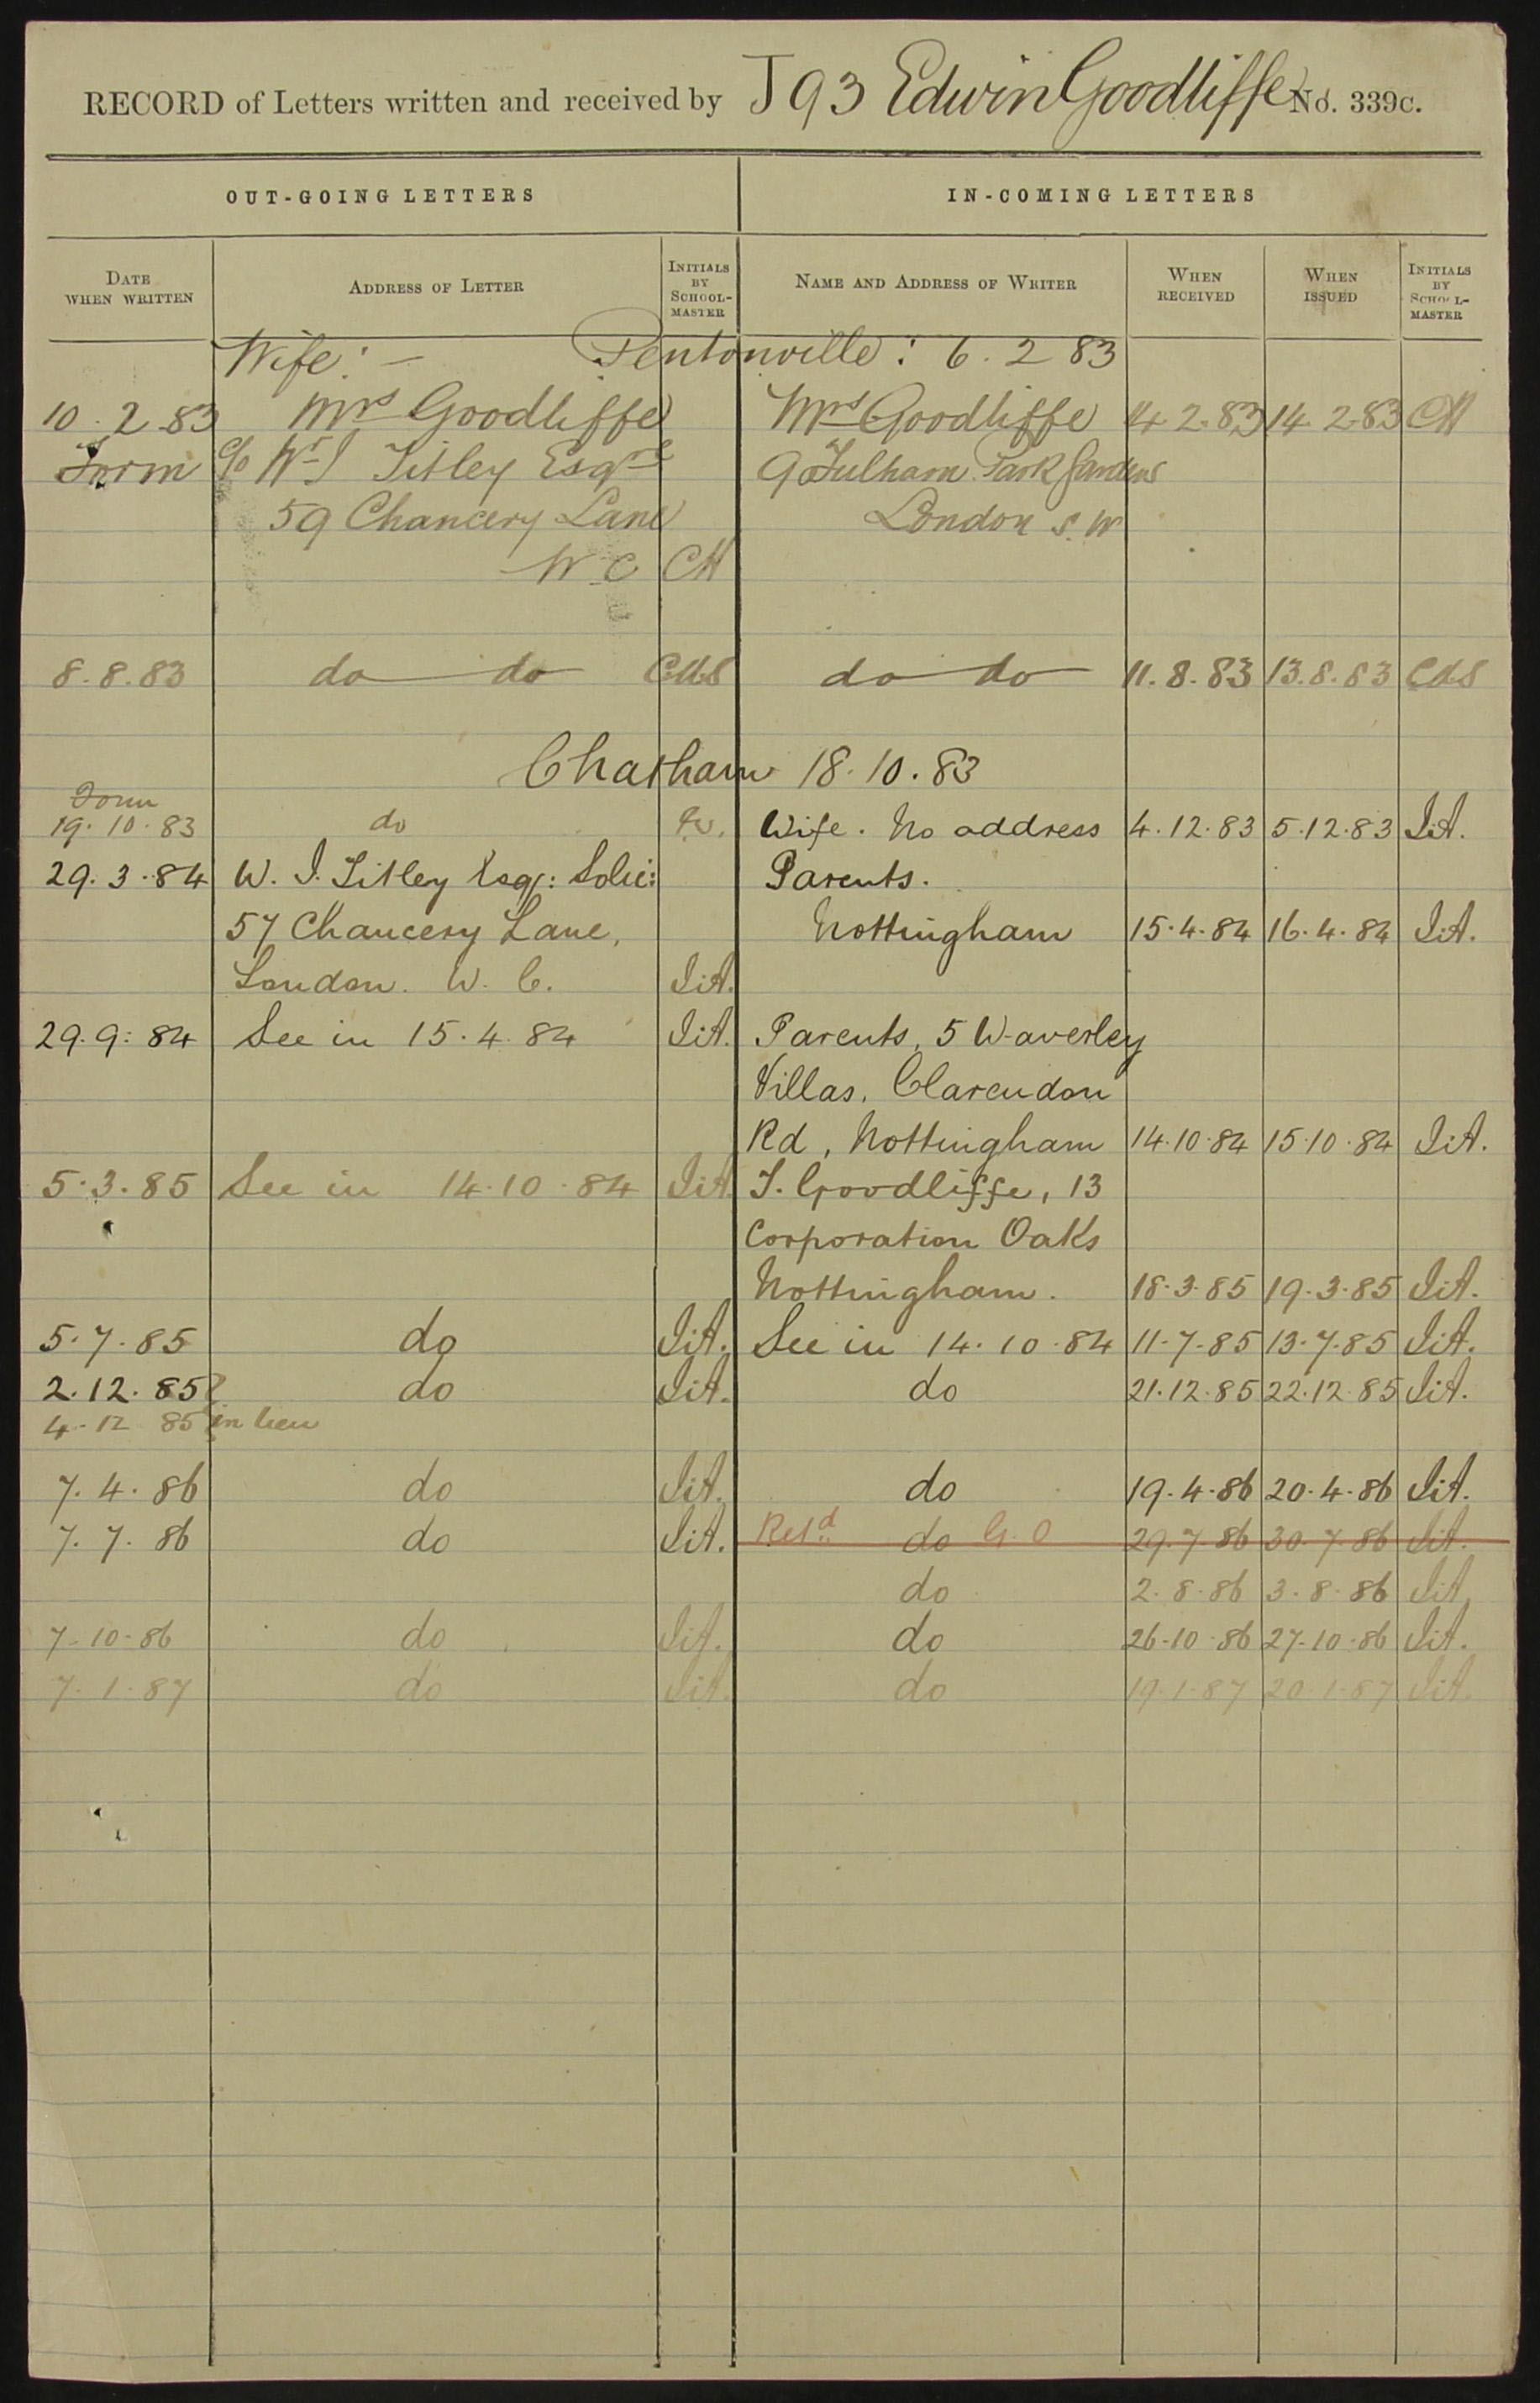 RECORD of Letters written and received by J 93 Edwin Goodliffe No. 339c.
OUT-GOING LETTERS IN-COMING LETTERS
DATE WHEN WRITTEN ADDRESS OF LETTER INITIALS BY SCHOOL-MASTER NAME AND ADDRESS OF WRITER WHEN RECEIVED WHEN ISSUED INITIALS BY SCHOOL-MASTER
Wife: - Pentonville: 6. 2 83
10. 2. 83 Mrs Goodliffe Mrs Goodliffe 14. 2. 83 14. 2. 83 CH
Form c/o W. J Titley Esqre 9 Fulham Park Gardens
59 Chancery Lane London S. W
W C CH
8. 8. 83 do do do do 11. 8. 83 13. 8. 83
Chatham 18. 10. 83
Form
19. 10. 83 do Wife. No address 4. 12. 83 5. 12. 83 JiA.
29. 3. 84 W. J. Titley Esq: Solic: Parents.
57 Chancery Lane, Nottingham 15. 4. 84 16. 4. 84 JiA.
London. W. C. JiA.
29. 9: 84 See in 15. 4. 84 JiA. Parents, 5 Waverley
Villas, Clarendon
Rd, Nottingham 14. 10. 84 15. 10. 84 JiA.
5. 3. 85 See in 14. 10. 84 JiA. J. Goodliffe, 13
Corporation Oaks
Nottingham. 18. 3. 85 19. 3. 85 JiA.
5. 7. 85 do JiA. See in 14. 10. 84 11. 7. 85 13. 7. 85 JiA.
2. 12. 85 do JiA. do 21. 12. 85 22. 12. 85 JiA.
4. 12 85 in lieu
7. 4. 86 do JiA. do 19. 4. 86 20. 4. 86 JiA.
7. 7. 86 do JiA. Retd. do G. O 29. 7. 86 30. 7. 86 JiA.
do 2. 8. 86 3. 8. 86 JiA
7. 10. 86 do JiA. do 26. 10. 86 27. 10. 86 JiA.
7. 1. 87 do JiA. do 19. 1. 87 20. 1. 87 JiA.